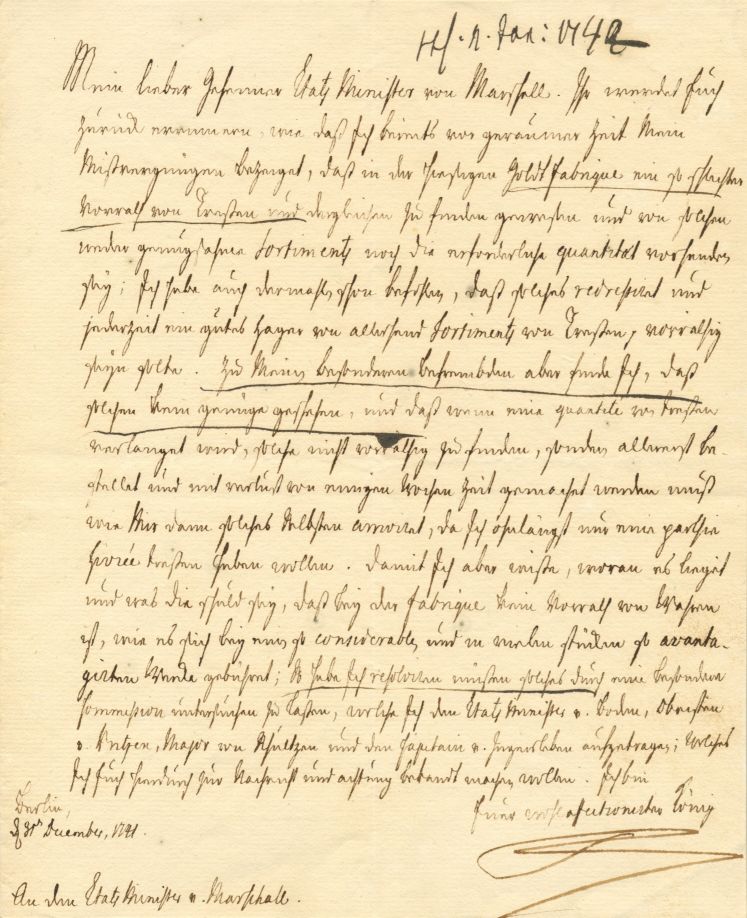 d. 2. Jan: 1742
Mein lieber Geheimer Etats Minister von Marschall. Ihr werdet Euch
zurück erinnern, wie daß Ich bereits vor geraumer Zeit Mein
Mißvergnügen bezeiget, daß in der hiesigen Goldt Fabrique ein so schlechter
Vorrath von Tressen und dergleichen zu finden gewesen und von solchen
weder genugsahme Sortiments noch die erforderliche quantität vorhanden
sey; Ich habe auch dermahls schon befohlen, daß solches redressiret und
jederzeit ein gutes Lager von allerhand Sortiments von Tressen, vorräthig
seyn solte. Zu Meinem besonderen Befrembden aber finde Ich, daß
solchen kein genüge geschehen, und daß wenn eine quantité von tressen
verlanget wird, solche nicht vorräthig zu finden, sondern allererst be-
stellet und mit verlust von einigen Wochen Zeit gemachet werden muß
wie Mir dann solches Selbsten arriviret, da Ich ohnlängst nur eine parthie
Livrée tressen haben wollen. Damit Ich aber wiße, woran es lieget
und was die schuld sey, daß bey der Fabrique kein Vorrath von Wahren
ist, wie es sich bey einem so considerablen und in vielen stücken so avanta-
girten Wercke gebühret; So habe Ich resolviren müßen solches durch eine besondere
Commission untersuchen zu laßen, welche Ich dem Etats Minister v. Boden, Obristen
v. Major von und dem Capitain v. Ingersleben aufgetragen; Welches
Ich Euch hierdurch zur Nachricht und achtung bekandt machen wollen. Ich bin
Euer wohlaffectionirter König
Berlin,
d. 31t December, 1741.
An den Etats Minister v. Marschall.